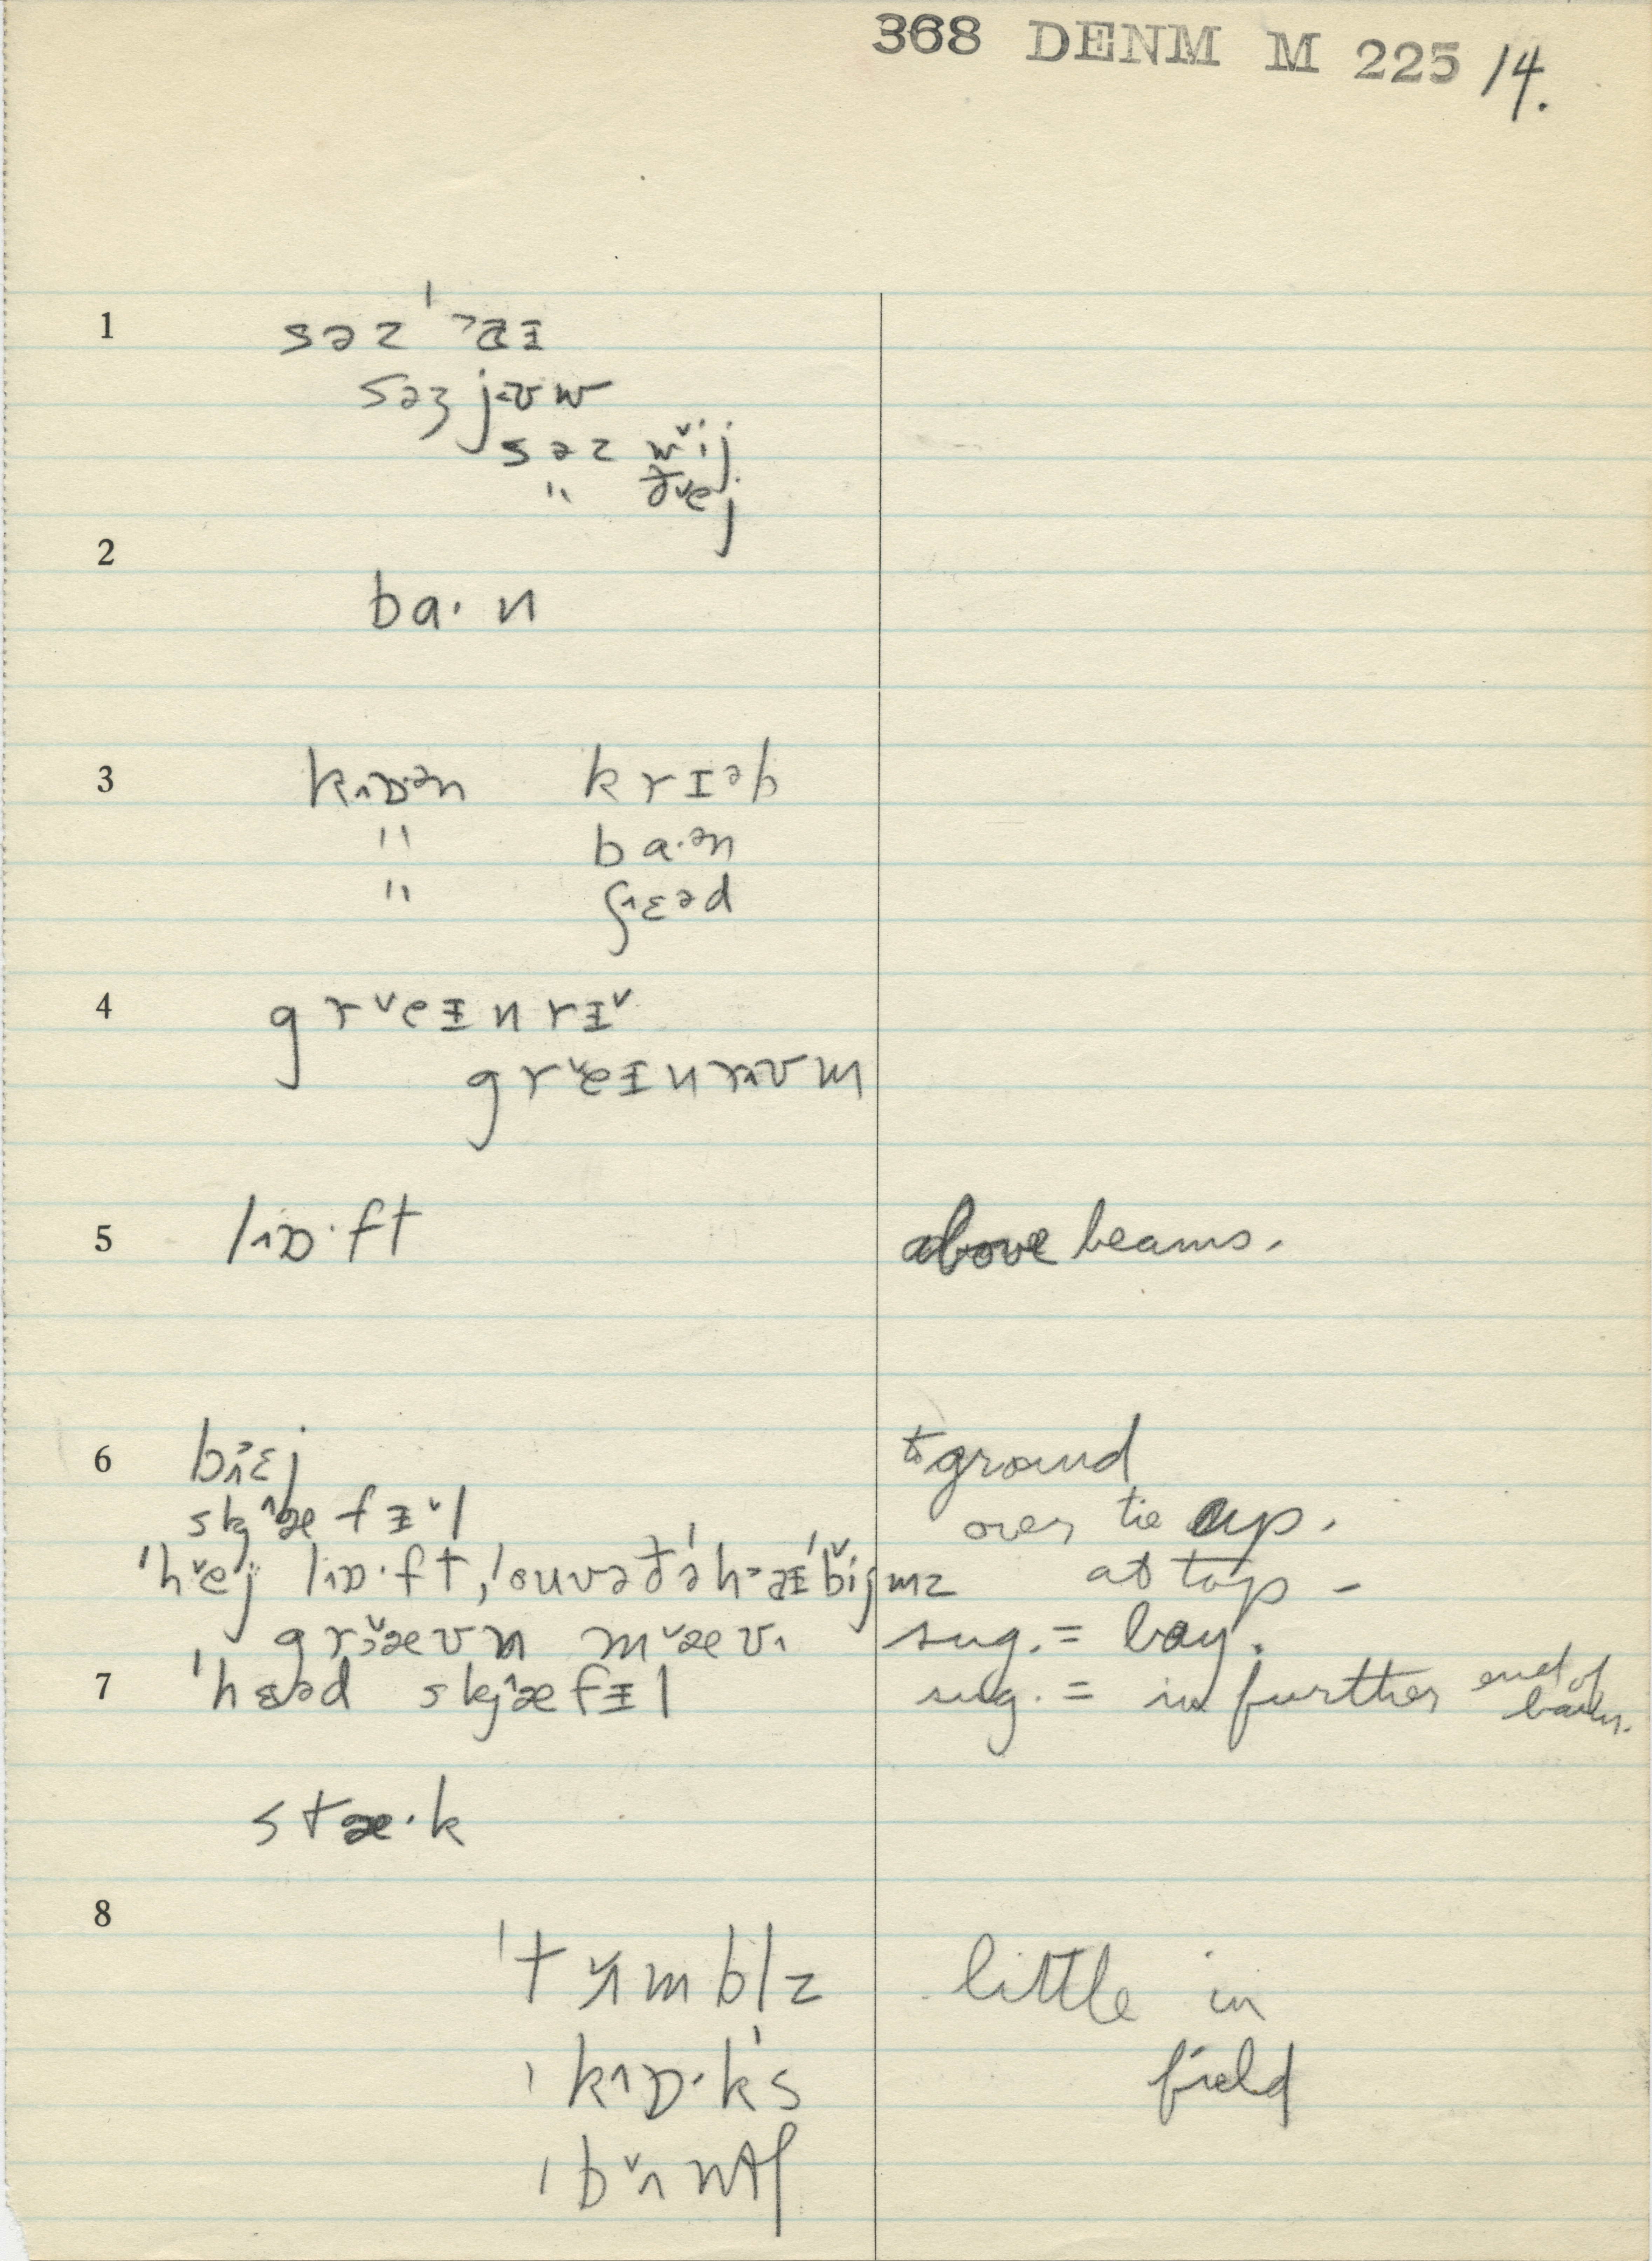 368 DENM M 225 14.
1 səz ˈɔaɪ
səʒ jʊw
səz w˅ij
" ð˅ej
2
ba· n
3 kɒən krɪəb
" ba·ən
" ʃɛəd
4 gr˅eɪnrɪ˅
gr˅eɪnrʊm
5 lɒ·ft above beams.
6 bɛj to ground
skæfɪ˅l over tie up.
ˈh˅ej lɒ·ft, at top –
græʊn m˅æʊ sug. = bay.
7 ˈhɛəd skæfɪl sug. = in further end of barn.
stæ·k
8
ˈtʌmblz little in
kɒ·k's field